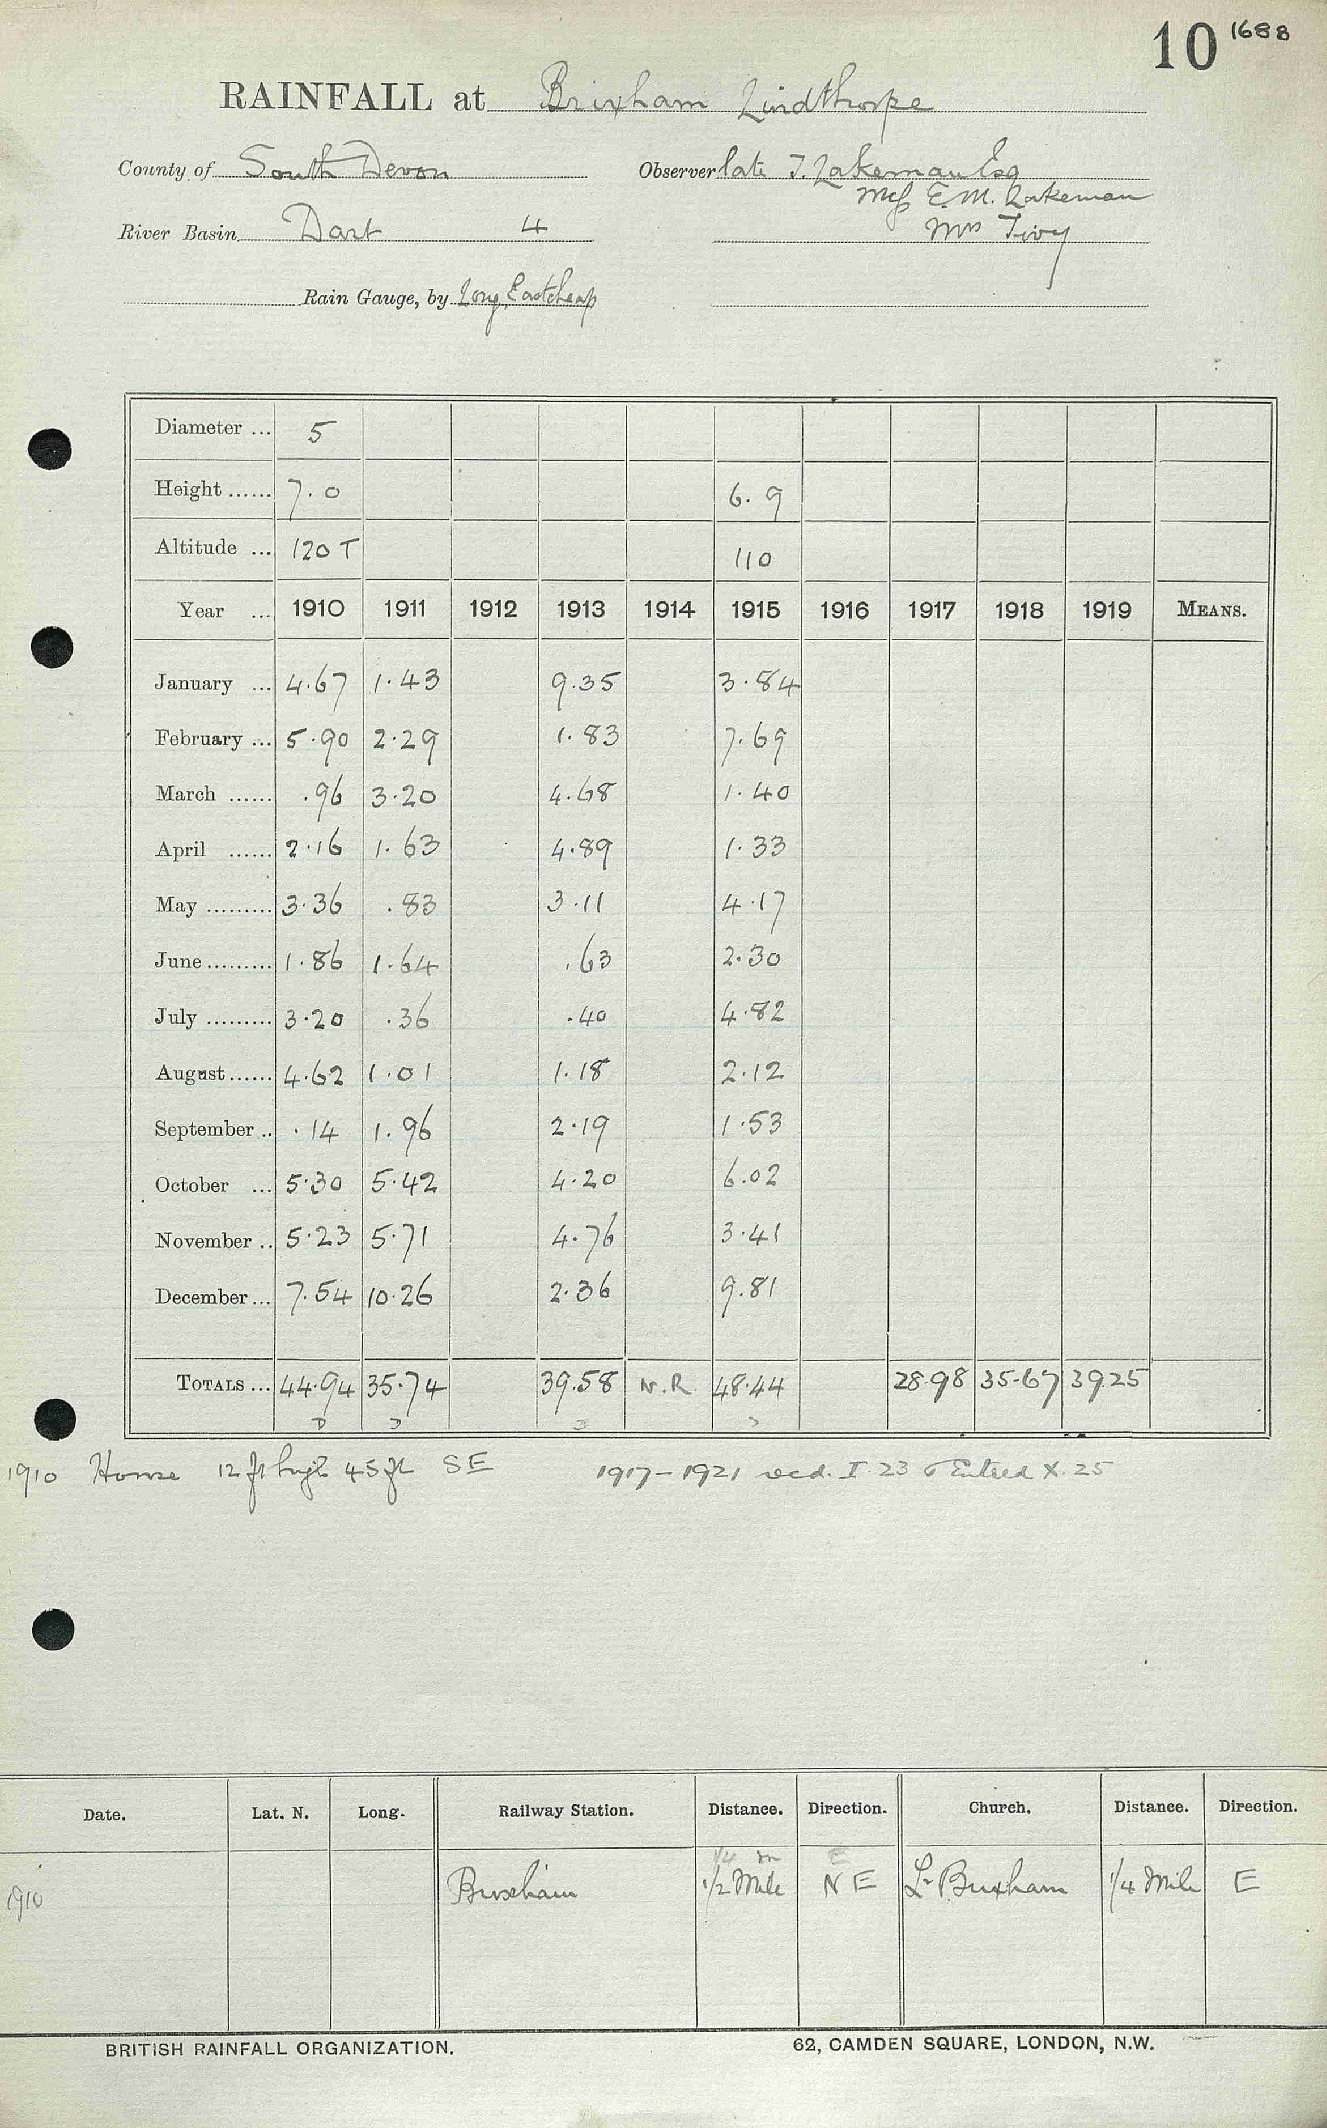 10 1688
RAINFALL at Brixham Lindthorpe
County of South Devon Observer late T. Lakeman Esq
Miss E. M. Lakeman
River Basin Dart 4 Mrs Tivy
Rain Gauge, by Long, Eastcheap
Diameter ... 5
Height ...... 7.0 6.9
Altitude ... 120 T 110
Year ... 1910 1911 1912 1913 1914 1915 1916 1917 1918 1919 MEANS.
January ... 4.67 1.43 9.35 3.84
February ... 5.90 2.29 1.83 7.69
March ...... .96 3.20 4.68 1.40
April ...... 2.16 1.63 4.89 1.33
May ......... 3.36 .83 3.11 4.17
June ......... 1.86 1.64 .63 2.30
July ......... 3.20 .36 .40 4.82
August ...... 4.62 1.01 1.18 2.12
September .. .14 1.96 2.19 1.53
October ... 5.30 5.42 4.20 6.02
November .. 5.23 5.71 4.76 3.41
December ... 7.54 10.26 2.36 9.81
TOTALS ... 44.94 35.74 39.58 N.R. 48.44 28.98 35.67 39.25
1910 House 12 ft high 45 ft SE 1917-1921 recd. I. 23 Entered X. 25
Date. Lat. N. Long. Railway Station. Distance. Direction. Church. Distance. Direction.
1/4 m E
1910 Brixham 1/2 Mile NE Lr Brixham 1/4 Mile E
BRITISH RAINFALL ORGANIZATION. 62, CAMDEN SQUARE, LONDON, N.W.